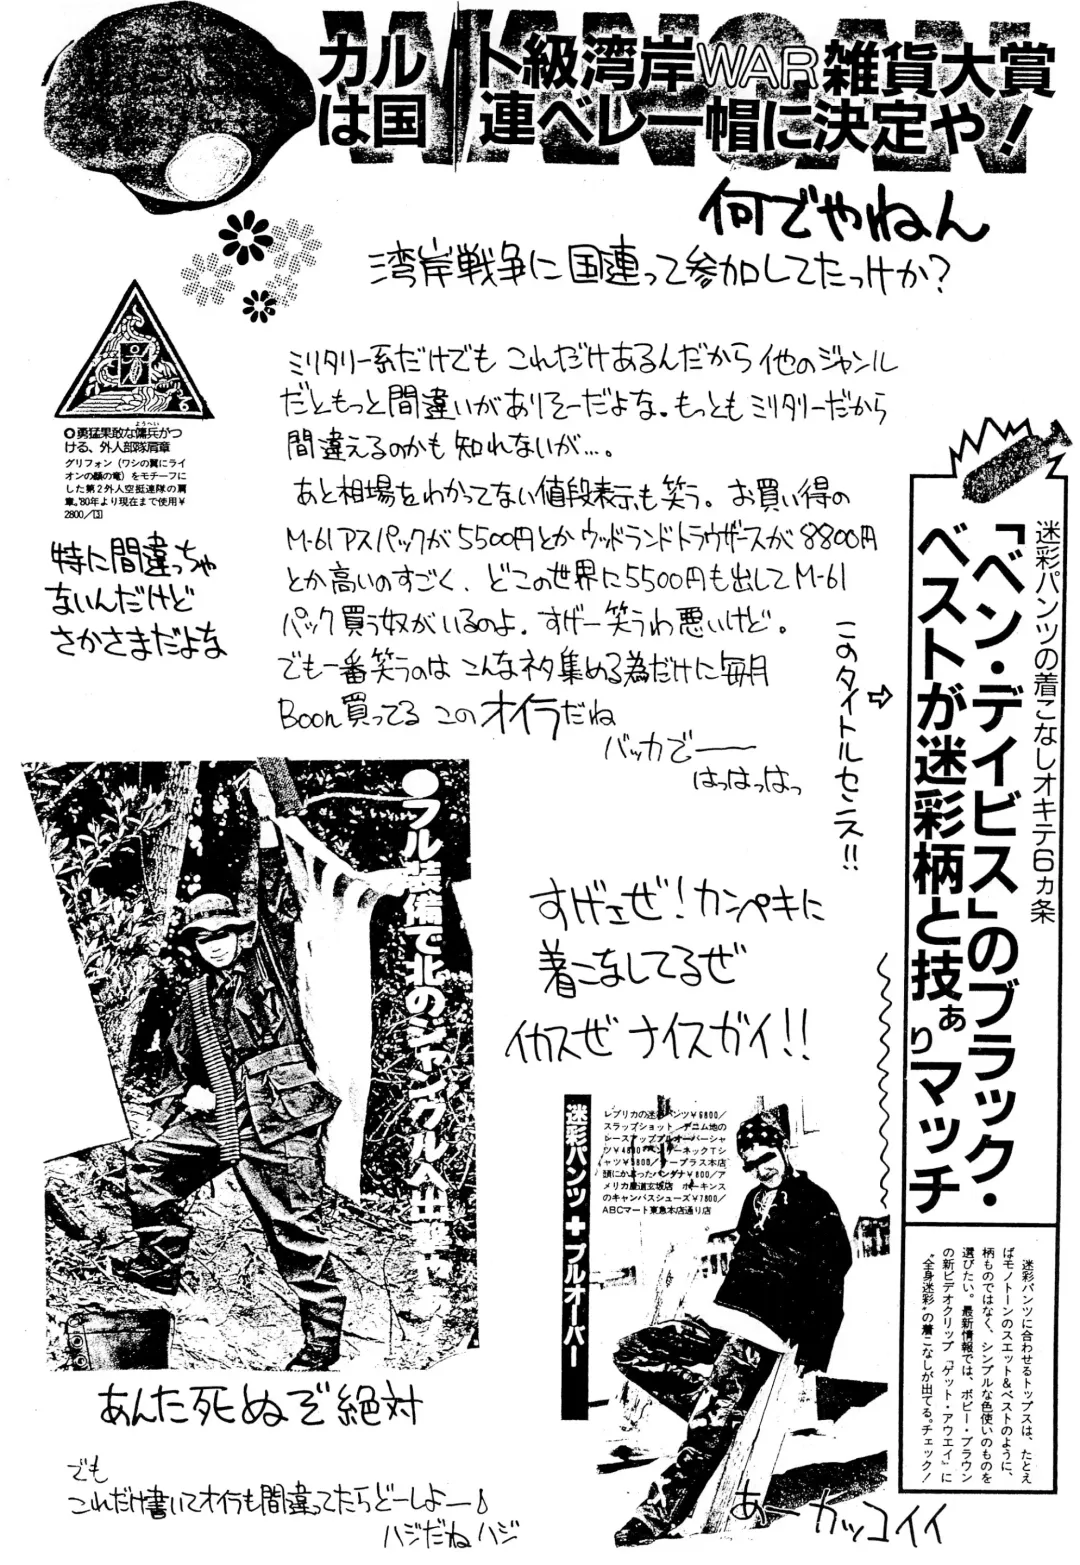 WANGAN
カルト級湾岸WAR雑貨大賞
は国連ベレー帽に決定や!
何でやねん
湾岸戦争に国連って参加してたっけか?
◎勇猛果敢な傭兵がつ
ようへい
ける、外人部隊肩章
グリフォン(ワシの翼にライ
オンの顔の竜)をモチーフに
した第2外人空挺連隊の肩
章。'80年より現在まで使用¥
2800/13
特に間違っちゃ
ないんだけど
さかさまだよな
ミリタリー系だけでも これだけあるんだから 他のジャンル
だともっと間違いがありそーだよな。もっともミリタリーだから
間違えるのかも知れないが…。
あと相場をわかってない値段表示も笑う。お買い得の
M-61アスパックが5500円とかウッドランドトラウザースが8800円
とか高いのすごく、どこの世界に5500円も出してM-61
パック買う奴がいるのよ。すげー笑うわ悪いけど。
でも一番笑うのは こんなネタ集める為だけに毎月
Boon買ってる このオイラだね
バッカでー
はっはっはっ
このタイトルセンス!!
⇨
迷彩パンツの着こなしオキテ6ヵ条
「ベン・デイビス」のブラック・
ベストが迷彩柄と技ぁりマッチ
迷彩パンツに合わせるトップスは、たとえ
ばモノトーンのスエット&ベストのように、
柄ものではなく、シンプルな色使いのものを
選びたい。最新情報では、ボビー・ブラウン
の新ビデオクリップ『ゲット・アウエイ』に
"全身迷彩"の着こなしが出てる。チェック!
●フル装備で北のジャングルへ出
すげェぜ!カンペキに
着こなしてるぜ
イカスぜ ナイスガイ!!
迷彩パンツ+プルオーバー
レプリカの迷彩パンツ¥6800/
スラップショット デニム地の
レースアッププルオーバーシャ
ツ¥4800 ヘンリーネックTシ
ャツ¥3800/
頭にかぶったバンダナ¥800/ア
メリカ屋道玄坂店 ホーキンス
のキャンバスシューズ¥7800/
ABCマート東急本店通り店
あんた死ぬぞ絶対
でも
これだけ書いてオイラも間違ってたらどーしよー♪
ハジだねハジ
あーカッコイイ